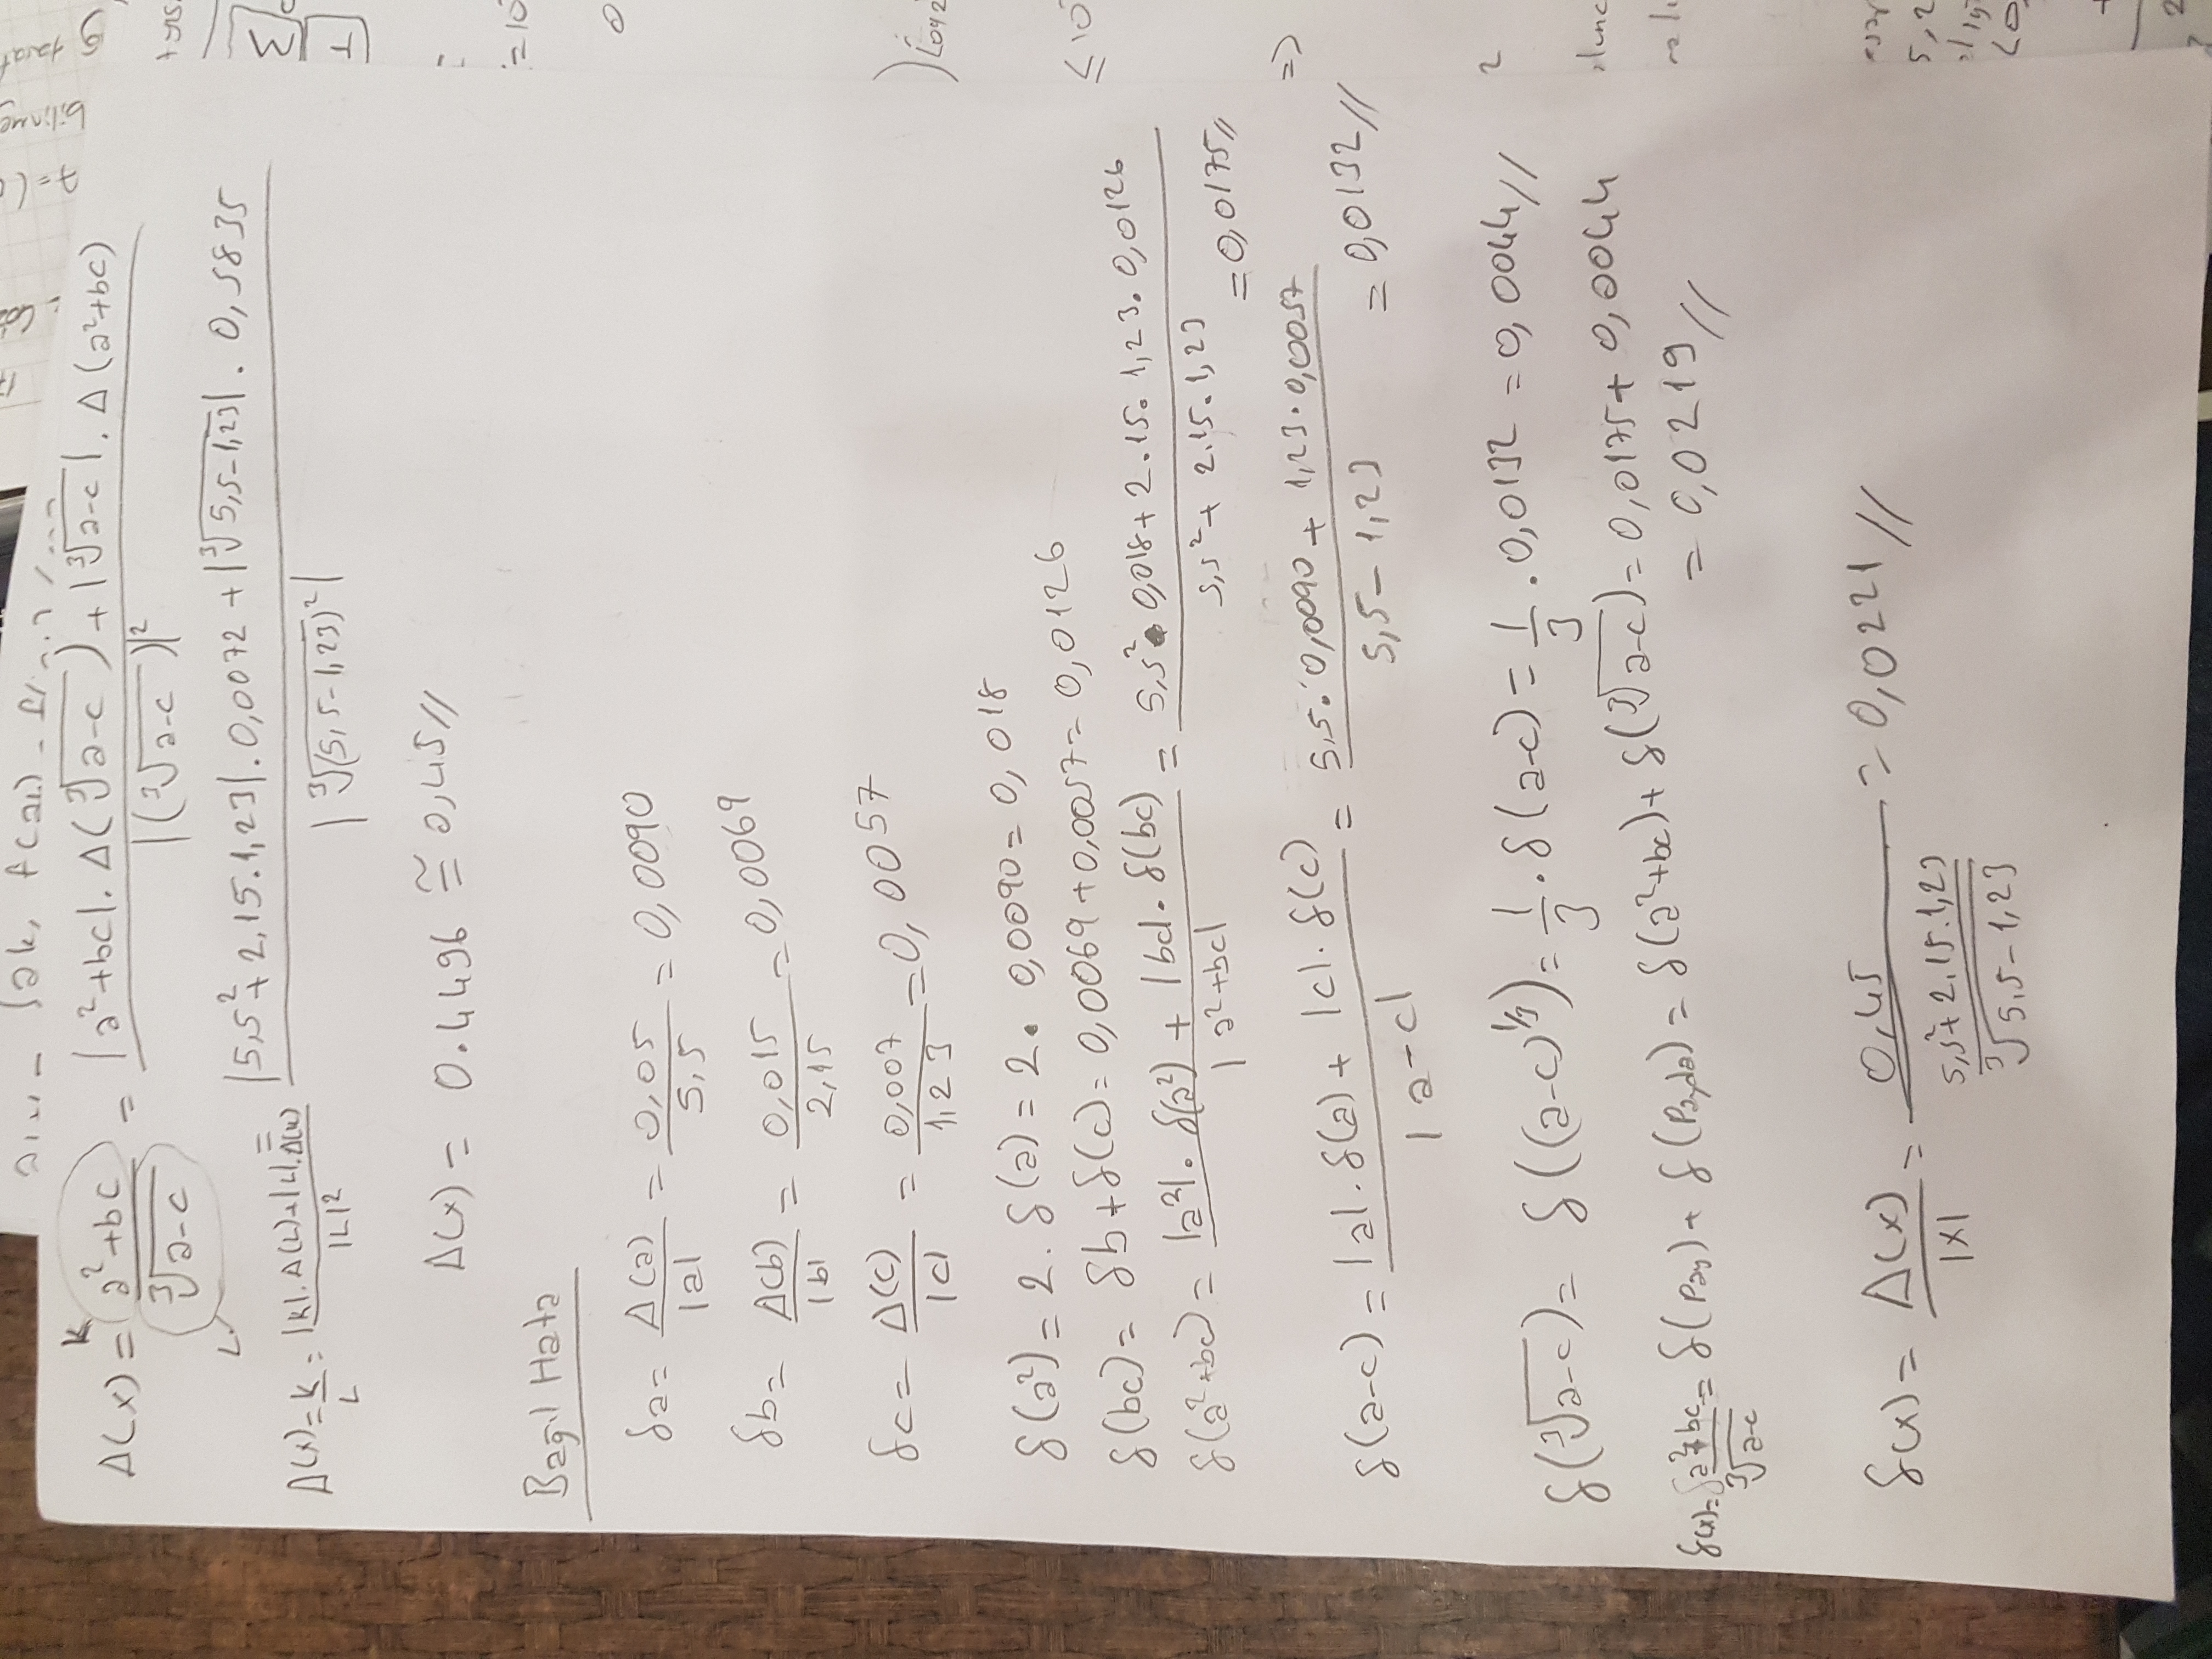 Δ(x) = K a²+bc / ∛(a-c) L = |a²+bc| . Δ(∛(a-c)) + |∛(a-c)| . Δ(a²+bc) / |(∛(a-c))|²
Δ(x) = K/L = |K|.Δ(L)+|L|.Δ(K) / |L|² = |5,5²+2,15.1,23|.0,0072 + |∛(5,5-1,23)| . 0,5835 / |∛(5,5-1,23)²|
Δ(x) = 0.4496 ≅ 0,45//
Bağıl Hata
δa = Δ(a)/|a| = 0,05/5,5 = 0,0090
δb = Δ(b)/|b| = 0,015/2,15 = 0,0069
δc = Δ(c)/|c| = 0,007/1,23 = 0,0057
δ(a²) = 2. δ(a) = 2. 0,0090 = 0,018
δ(bc) = δb + δ(c) = 0,0069+0,0057 = 0,0126
δ(a²+bc) = |a²|. δ(a²) + |bc|. δ(bc) / |a²+bc| = 5,5². 0,018 + 2.15. 1,23. 0,0126 / 5,5²+ 2.15.1,23
= 0,0175//
δ(a-c) = |a|. δ(a) + |c|. δ(c) / |a-c| = 5,5. 0,0090 + 1,23. 0,0057 / 5,5-1,23 = 0,0132//
δ(∛(a-c)) = δ((a-c)^1/3) = 1/3 . δ(a-c) = 1/3 . 0,0132 = 0,0044//
δ(x) = δ a²+bc / ∛(a-c) = δ(Pay) + δ(Payda) = δ(a²+bc) + δ(∛(a-c)) = 0,0175+ 0,0044
= 0,0219//
δ(x) = Δ(x)/|x| = 0,45 / (5,5²+2,15.1,23 / ∛(5,5-1,23)) = 0,0221//